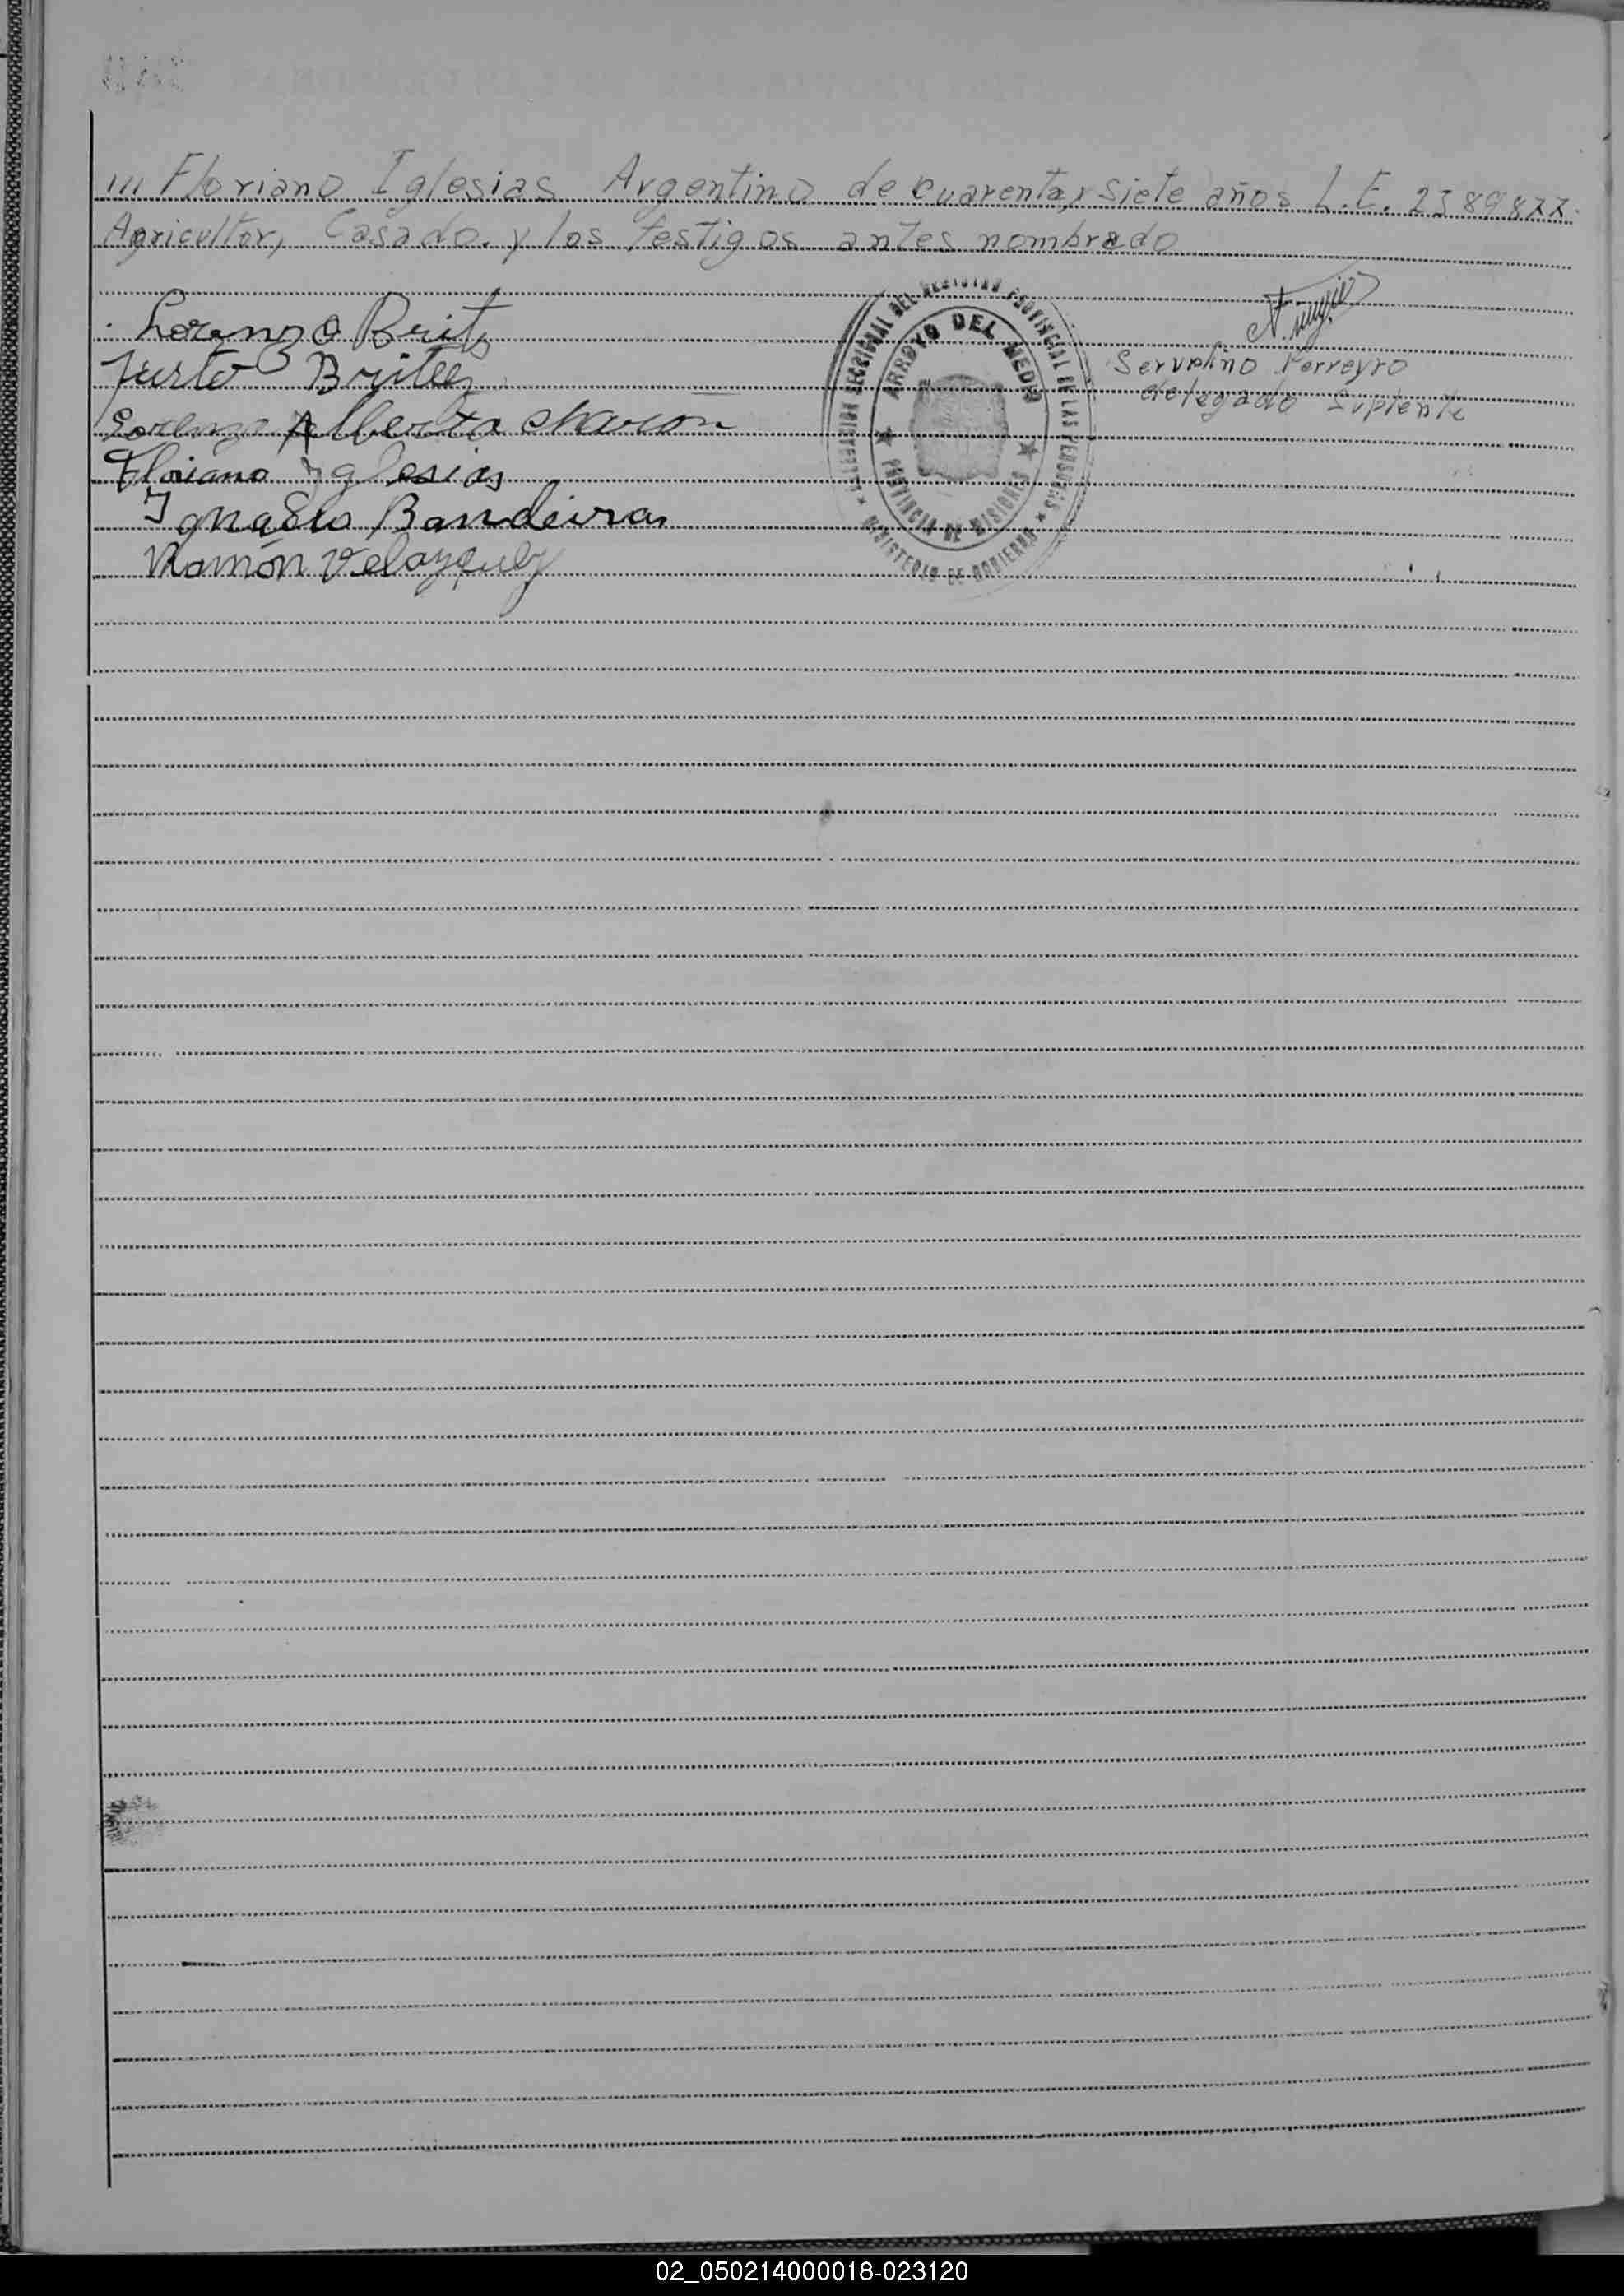 /// Floriano Iglesias Argentino de cuarenta y siete años L.E. 2389877.
Agricultor, Casado. y los testigos antes nombrado
Lorenzo Brito
Justo Britez
Lorenzo Alberto
Floriano Yglesias
Ignasio Bandeira
Ramón Velazquez
DELEGACION SECCIONAL DEL REGISTRO PROVINCIAL DE LAS PERSONAS
ARROYO DEL MEDIO
PROVINCIA DE MISIONES
MINISTERIO DE GOBIERNO
Servelino Ferreyro
delegado Suplente
02_050214000018-023120